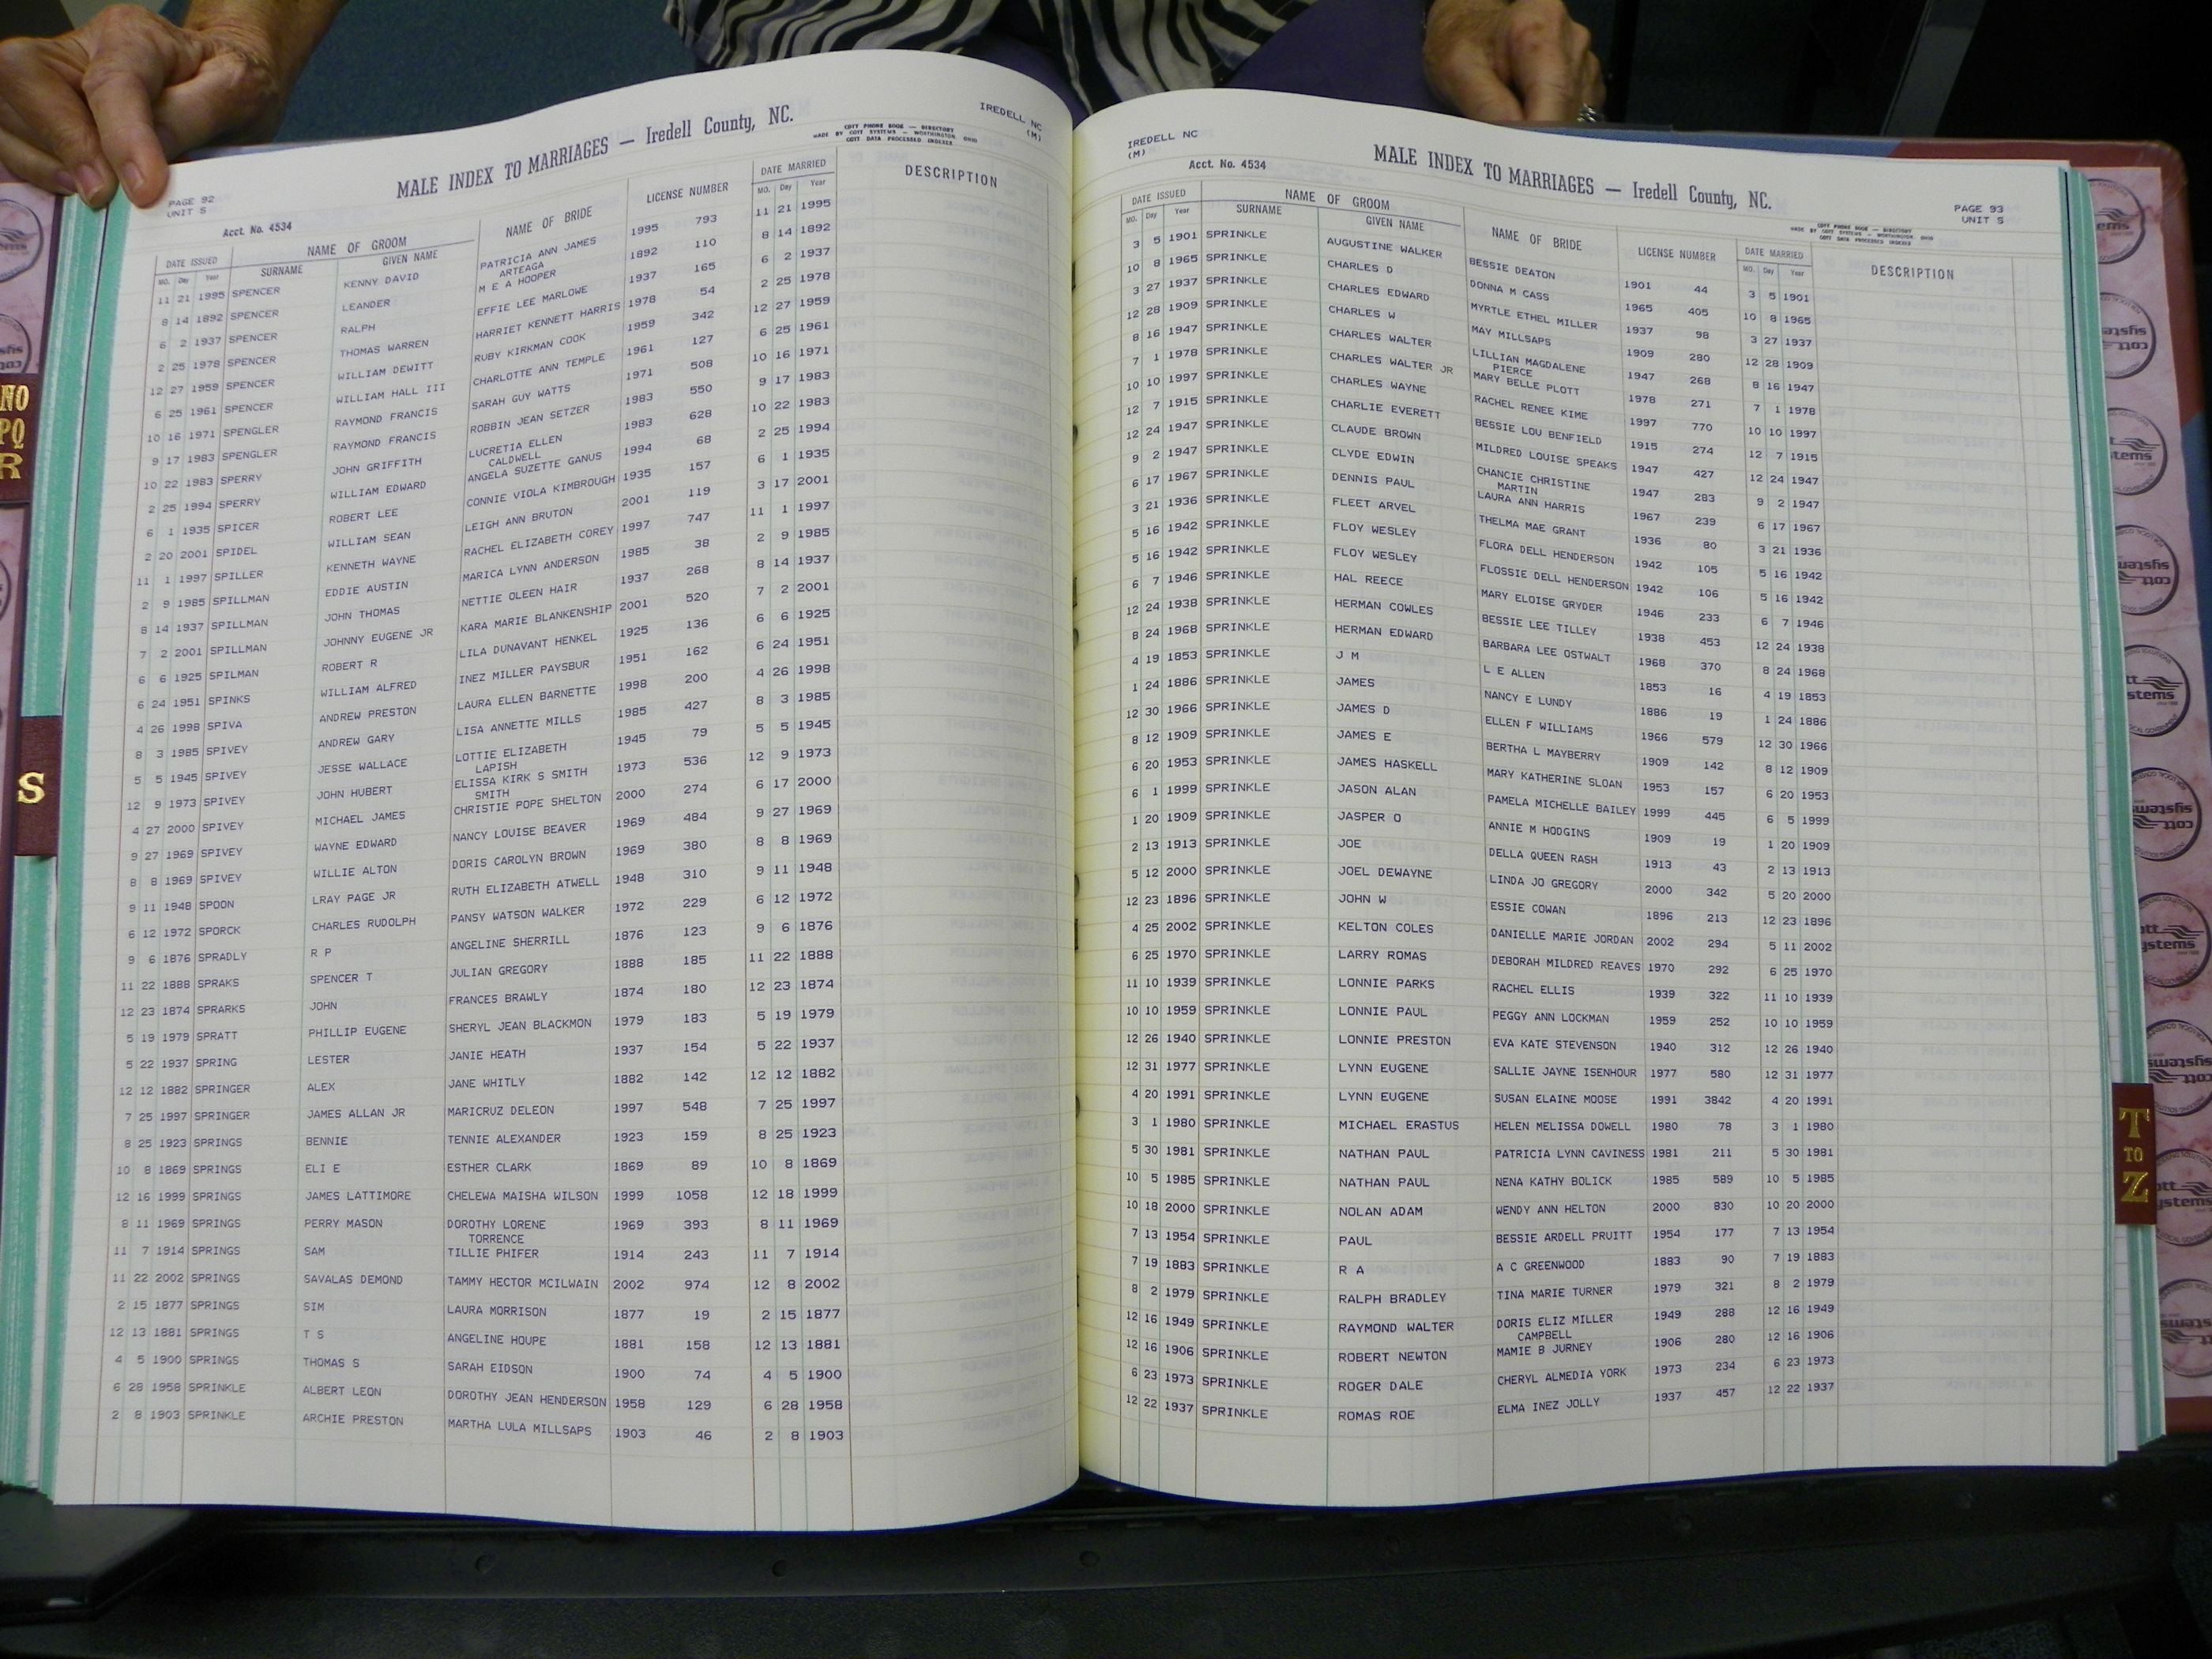 PAGE 92
UNIT S
MALE INDEX TO MARRIAGES — Iredell County, NC.
IREDELL NC
(M)
COTT PHONE BOOK — DIRECTORY
MADE BY COTT SYSTEMS — WORTHINGTON, OHIO
COTT DATA PROCESSED INDEXER
Acct. No. 4534
DATE ISSUED NAME OF GROOM NAME OF BRIDE LICENSE NUMBER DATE MARRIED DESCRIPTION
MO. Day Year SURNAME GIVEN NAME MO. Day Year
11 21 1995 SPENCER KENNY DAVID PATRICIA ANN JAMES 1995 793 11 21 1995
ARTEAGA
8 14 1892 SPENCER LEANDER M E A HOOPER 1892 110 8 14 1892
6 2 1937 SPENCER RALPH EFFIE LEE MARLOWE 1937 165 6 2 1937
2 25 1978 SPENCER THOMAS WARREN HARRIET KENNETT HARRIS 1978 54 2 25 1978
12 27 1959 SPENCER WILLIAM DEWITT RUBY KIRKMAN COOK 1959 342 12 27 1959
6 25 1961 SPENCER WILLIAM HALL III CHARLOTTE ANN TEMPLE 1961 127 6 25 1961
10 16 1971 SPENGLER RAYMOND FRANCIS SARAH GUY WATTS 1971 508 10 16 1971
9 17 1983 SPENGLER RAYMOND FRANCIS ROBBIN JEAN SETZER 1983 550 9 17 1983
10 22 1983 SPERRY JOHN GRIFFITH LUCRETIA ELLEN 1983 628 10 22 1983
CALDWELL
2 25 1994 SPERRY WILLIAM EDWARD ANGELA SUZETTE GANUS 1994 68 2 25 1994
6 1 1935 SPICER ROBERT LEE CONNIE VIOLA KIMBROUGH 1935 157 6 1 1935
2 20 2001 SPIDEL WILLIAM SEAN LEIGH ANN BRUTON 2001 119 3 17 2001
11 1 1997 SPILLER KENNETH WAYNE RACHEL ELIZABETH COREY 1997 747 11 1 1997
2 9 1985 SPILLMAN EDDIE AUSTIN MARICA LYNN ANDERSON 1985 38 2 9 1985
8 14 1937 SPILLMAN JOHN THOMAS NETTIE OLEEN HAIR 1937 268 8 14 1937
7 2 2001 SPILLMAN JOHNNY EUGENE JR KARA MARIE BLANKENSHIP 2001 520 7 2 2001
6 6 1925 SPILMAN ROBERT R LILA DUNAVANT HENKEL 1925 136 6 6 1925
6 24 1951 SPINKS WILLIAM ALFRED INEZ MILLER PAYSBUR 1951 162 6 24 1951
4 26 1998 SPIVA ANDREW PRESTON LAURA ELLEN BARNETTE 1998 200 4 26 1998
8 3 1985 SPIVEY ANDREW GARY LISA ANNETTE MILLS 1985 427 8 3 1985
5 5 1945 SPIVEY JESSE WALLACE LOTTIE ELIZABETH 1945 79 5 5 1945
LAPISH
12 9 1973 SPIVEY JOHN HUBERT ELISSA KIRK S SMITH 1973 536 12 9 1973
SMITH
4 27 2000 SPIVEY MICHAEL JAMES CHRISTIE POPE SHELTON 2000 274 6 17 2000
9 27 1969 SPIVEY WAYNE EDWARD NANCY LOUISE BEAVER 1969 484 9 27 1969
8 8 1969 SPIVEY WILLIE ALTON DORIS CAROLYN BROWN 1969 380 8 8 1969
9 11 1948 SPOON LRAY PAGE JR RUTH ELIZABETH ATWELL 1948 310 9 11 1948
6 12 1972 SPORCK CHARLES RUDOLPH PANSY WATSON WALKER 1972 229 6 12 1972
9 6 1876 SPRADLY R P ANGELINE SHERRILL 1876 123 9 6 1876
11 22 1888 SPRAKS SPENCER T JULIAN GREGORY 1888 185 11 22 1888
12 23 1874 SPRARKS JOHN FRANCES BRAWLY 1874 180 12 23 1874
5 19 1979 SPRATT PHILLIP EUGENE SHERYL JEAN BLACKMON 1979 183 5 19 1979
5 22 1937 SPRING LESTER JANIE HEATH 1937 154 5 22 1937
12 12 1882 SPRINGER ALEX JANE WHITLY 1882 142 12 12 1882
7 25 1997 SPRINGER JAMES ALLAN JR MARICRUZ DELEON 1997 548 7 25 1997
8 25 1923 SPRINGS BENNIE TENNIE ALEXANDER 1923 159 8 25 1923
10 8 1869 SPRINGS ELI E ESTHER CLARK 1869 89 10 8 1869
12 16 1999 SPRINGS JAMES LATTIMORE CHELEWA MAISHA WILSON 1999 1058 12 18 1999
8 11 1969 SPRINGS PERRY MASON DOROTHY LORENE 1969 393 8 11 1969
TORRENCE
11 7 1914 SPRINGS SAM TILLIE PHIFER 1914 243 11 7 1914
11 22 2002 SPRINGS SAVALAS DEMOND TAMMY HECTOR MCILWAIN 2002 974 12 8 2002
2 15 1877 SPRINGS SIM LAURA MORRISON 1877 19 2 15 1877
12 13 1881 SPRINGS T S ANGELINE HOUPE 1881 158 12 13 1881
4 5 1900 SPRINGS THOMAS S SARAH EIDSON 1900 74 4 5 1900
6 28 1958 SPRINKLE ALBERT LEON DOROTHY JEAN HENDERSON 1958 129 6 28 1958
2 8 1903 SPRINKLE ARCHIE PRESTON MARTHA LULA MILLSAPS 1903 46 2 8 1903
IREDELL NC
(M)
Acct. No. 4534
MALE INDEX TO MARRIAGES — Iredell County, NC.
PAGE 93
UNIT S
COTT PHONE BOOK — DIRECTORY
MADE BY COTT SYSTEMS — WORTHINGTON, OHIO
COTT DATA PROCESSED INDEXER
DATE ISSUED NAME OF GROOM NAME OF BRIDE LICENSE NUMBER DATE MARRIED DESCRIPTION
MO. Day Year SURNAME GIVEN NAME MO. Day Year
3 5 1901 SPRINKLE AUGUSTINE WALKER BESSIE DEATON 1901 44 3 5 1901
10 8 1965 SPRINKLE CHARLES D DONNA M CASS 1965 405 10 8 1965
3 27 1937 SPRINKLE CHARLES EDWARD MYRTLE ETHEL MILLER 1937 98 3 27 1937
12 28 1909 SPRINKLE CHARLES W MAY MILLSAPS 1909 280 12 28 1909
8 16 1947 SPRINKLE CHARLES WALTER LILLIAN MAGDALENE 1947 268 8 16 1947
PIERCE
7 1 1978 SPRINKLE CHARLES WALTER JR MARY BELLE PLOTT 1978 271 7 1 1978
10 10 1997 SPRINKLE CHARLES WAYNE RACHEL RENEE KIME 1997 770 10 10 1997
12 7 1915 SPRINKLE CHARLIE EVERETT BESSIE LOU BENFIELD 1915 274 12 7 1915
12 24 1947 SPRINKLE CLAUDE BROWN MILDRED LOUISE SPEAKS 1947 427 12 24 1947
9 2 1947 SPRINKLE CLYDE EDWIN CHANCIE CHRISTINE 1947 283 9 2 1947
MARTIN
6 17 1967 SPRINKLE DENNIS PAUL LAURA ANN HARRIS 1967 239 6 17 1967
3 21 1936 SPRINKLE FLEET ARVEL THELMA MAE GRANT 1936 80 3 21 1936
5 16 1942 SPRINKLE FLOY WESLEY FLORA DELL HENDERSON 1942 105 5 16 1942
5 16 1942 SPRINKLE FLOY WESLEY FLOSSIE DELL HENDERSON 1942 106 5 16 1942
6 7 1946 SPRINKLE HAL REECE MARY ELOISE GRYDER 1946 233 6 7 1946
12 24 1938 SPRINKLE HERMAN COWLES BESSIE LEE TILLEY 1938 453 12 24 1938
8 24 1968 SPRINKLE HERMAN EDWARD BARBARA LEE OSTWALT 1968 370 8 24 1968
4 19 1853 SPRINKLE J M L E ALLEN 1853 16 4 19 1853
1 24 1886 SPRINKLE JAMES NANCY E LUNDY 1886 19 1 24 1886
12 30 1966 SPRINKLE JAMES D ELLEN F WILLIAMS 1966 579 12 30 1966
8 12 1909 SPRINKLE JAMES E BERTHA L MAYBERRY 1909 142 8 12 1909
6 20 1953 SPRINKLE JAMES HASKELL MARY KATHERINE SLOAN 1953 157 6 20 1953
6 1 1999 SPRINKLE JASON ALAN PAMELA MICHELLE BAILEY 1999 445 6 5 1999
1 20 1909 SPRINKLE JASPER O ANNIE M HODGINS 1909 19 1 20 1909
2 13 1913 SPRINKLE JOE DELLA QUEEN RASH 1913 43 2 13 1913
5 12 2000 SPRINKLE JOEL DEWAYNE LINDA JO GREGORY 2000 342 5 20 2000
12 23 1896 SPRINKLE JOHN W ESSIE COWAN 1896 213 12 23 1896
4 25 2002 SPRINKLE KELTON COLES DANIELLE MARIE JORDAN 2002 294 5 11 2002
6 25 1970 SPRINKLE LARRY ROMAS DEBORAH MILDRED REAVES 1970 292 6 25 1970
11 10 1939 SPRINKLE LONNIE PARKS RACHEL ELLIS 1939 322 11 10 1939
10 10 1959 SPRINKLE LONNIE PAUL PEGGY ANN LOCKMAN 1959 252 10 10 1959
12 26 1940 SPRINKLE LONNIE PRESTON EVA KATE STEVENSON 1940 312 12 26 1940
12 31 1977 SPRINKLE LYNN EUGENE SALLIE JAYNE ISENHOUR 1977 580 12 31 1977
4 20 1991 SPRINKLE LYNN EUGENE SUSAN ELAINE MOOSE 1991 3842 4 20 1991
3 1 1980 SPRINKLE MICHAEL ERASTUS HELEN MELISSA DOWELL 1980 78 3 1 1980
5 30 1981 SPRINKLE NATHAN PAUL PATRICIA LYNN CAVINESS 1981 211 5 30 1981
10 5 1985 SPRINKLE NATHAN PAUL NENA KATHY BOLICK 1985 589 10 5 1985
10 18 2000 SPRINKLE NOLAN ADAM WENDY ANN HELTON 2000 830 10 20 2000
7 13 1954 SPRINKLE PAUL BESSIE ARDELL PRUITT 1954 177 7 13 1954
7 19 1883 SPRINKLE R A A C GREENWOOD 1883 90 7 19 1883
8 2 1979 SPRINKLE RALPH BRADLEY TINA MARIE TURNER 1979 321 8 2 1979
12 16 1949 SPRINKLE RAYMOND WALTER DORIS ELIZ MILLER 1949 288 12 16 1949
CAMPBELL
12 16 1906 SPRINKLE ROBERT NEWTON MAMIE B JURNEY 1906 280 12 16 1906
6 23 1973 SPRINKLE ROGER DALE CHERYL ALMEDIA YORK 1973 234 6 23 1973
12 22 1937 SPRINKLE ROMAS ROE ELMA INEZ JOLLY 1937 457 12 22 1937
NO
PQ
R
S
T
TO
Z
cott
systems